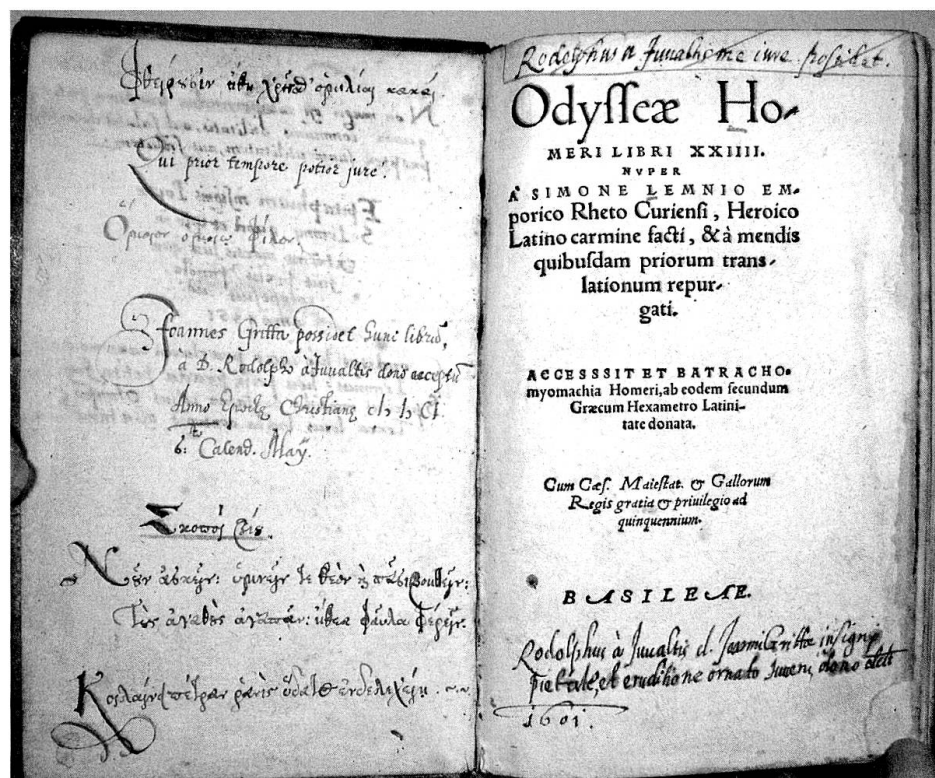 Φθείρουσιν ἤθη χρῆσθ' ὁμιλίαι κακαί.
Qui prior tempore potior jure.
Ὅμοιον ὁμοίῳ φίλον.
Joannes Gritta possidet hunc librũ,
à D. Rodolpho à Juvaltis dono acceptũ
Anno Christiano
6. Calend. May.
Σκοποὶ
Νοῦν ἀσκεῖν: ὑμνεῖν τε θεὸν
Τοὺς ἀγαθοὺς ἀγαπᾶν: ἤθεα φαῦλα φέρειν.
Κοιλαίνει πέτραν ῥανὶς ὕδατος ἐνδελεχείῃ.
Rodolphus a Juualthis me iure possidet.
Odyſſeæ Ho-
MERI LIBRI XXIIII.
NVPER
A' SIMONE LEMNIO EM-
porico Rheto Curienſi, Heroico
Latino carmine facti, & à mendis
quibuſdam priorum trans-
lationum repur-
gati.
ACCESSSIT ET BATRACHO-
myomachia Homeri, ab eodem ſecundum
Græcum Hexametro Latini-
tate donata.
Cum Cæſ. Maieſtat. & Gallorum
Regis gratia & priuilegio ad
quinquennium.
BASILEAE.
Rodolphus à Juualtis d. Joanni Grittæ insigni
pietate, et eruditione ornato Juueni dono dedit
1601.